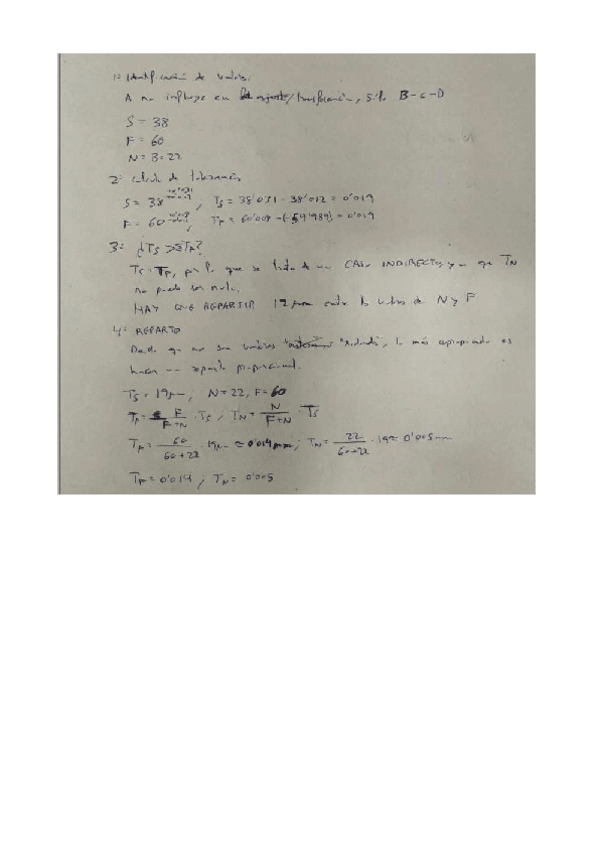 1: Identificación de valores.
A no influye en /transferencia, sólo B-C-D
S = 38
F = 60
N = B = 22
2: Cálculo de tolerancias
S = 38 , Ts = 38'031 - 38'012 = 0'019
F = 60 , TF = 60'009 - (-59'989) = 0'019
3: ¿Ts TF?
Ts = TF, por lo que se trata de un CASO INDIRECTO, ya que TN
no puede ser nula.
HAY QUE REPARTIR entre los valores de N y F
4: REPARTO
Dado que no son valores , lo más apropiado es
hacer un reparto proporcional.
Ts = 19 μm ; N = 22, F = 60
TF = F/F+N · Ts ; TN = N/F+N · Ts
TF = 60/60+22 · 19μm ≈ 0'014mm ; TN = 22/60+22 · 19 ≈ 0'005mm
TF = 0'014 ; TN = 0'005